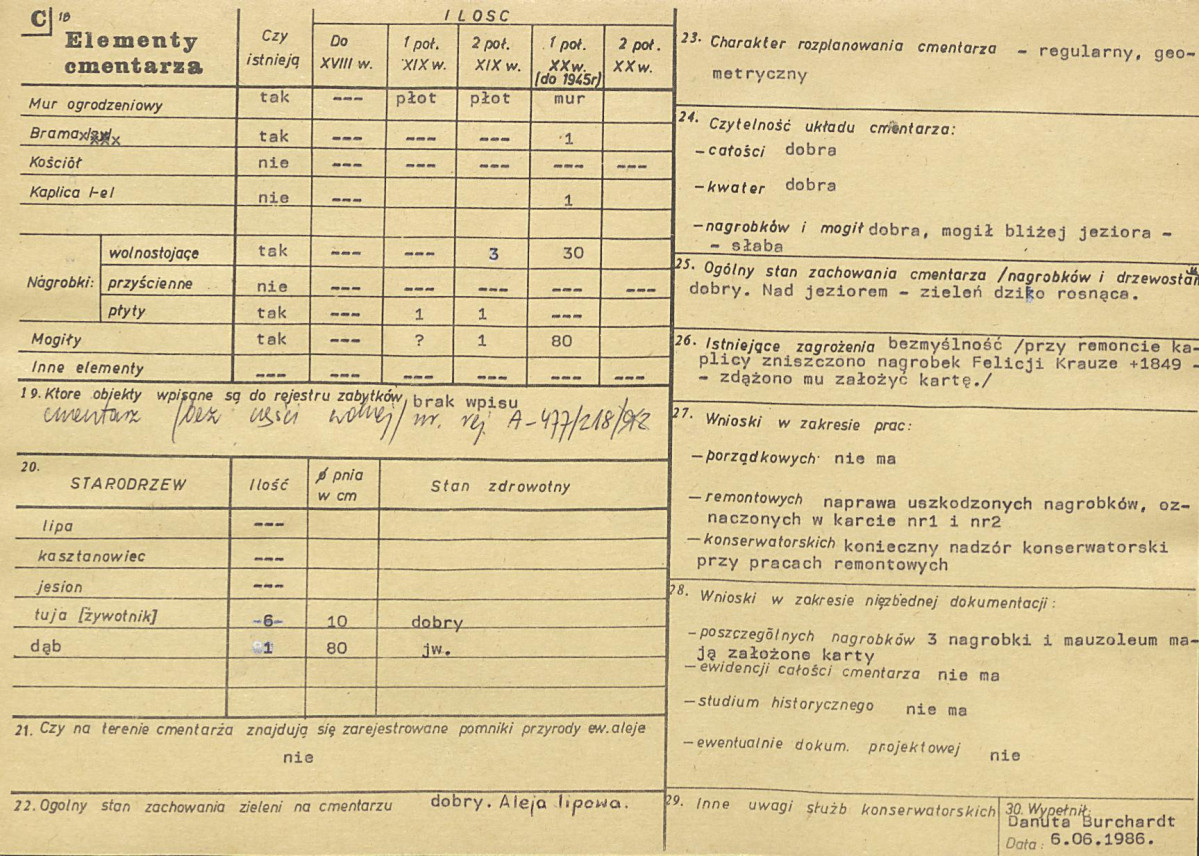 C 18
Elementy
cmentarza
Czy
istnieją
ILOSC
Do
XVIII w.
1 poł.
XIX w.
2 poł.
XIX w.
1 poł.
XXw.
(do 1945r)
2 poł.
XXw.
Mur ogrodzeniowy tak --- płot płot mur
Brama tak --- --- --- 1
Kościół nie --- --- --- --- ---
Kaplica /-e/ nie --- 1
Nagrobki: wolnostojące tak --- --- 3 30
przyścienne nie --- --- --- --- ---
płyty tak --- 1 1 ---
Mogiły tak --- ? 1 80
Inne elementy --- --- --- --- --- ---
19. Ktore objekty wpisane są do rejestru zabytków brak wpisu
cmentarz /bez części wolnej/ nr. rej. A-477/218/
20.
STARODRZEW Ilość ø pnia
w cm Stan zdrowotny
lipa ---
kasztanowiec ---
jesion ---
tuja [żywotnik] -6- 10 dobry
dąb 1 80 jw.
21. Czy na terenie cmentarza znajdują się zarejestrowane pomniki przyrody ew. aleje
nie
22. Ogolny stan zachowania zieleni na cmentarzu dobry. Aleja lipowa.
23. Charakter rozplanowania cmentarza - regularny, geo-
metryczny
24. Czytelność układu cmentarza:
-całości dobra
-kwater dobra
-nagrobków i mogił dobra, mogił bliżej jeziora -
- słaba
25. Ogólny stan zachowania cmentarza /nagrobków i drzewostanu
dobry. Nad jeziorem - zieleń dziko rosnąca.
26. Istniejące zagrożenia bezmyślność /przy remoncie ka-
plicy zniszczono nagrobek Felicji Krauze +1849 -
- zdążono mu założyć kartę./
27. Wnioski w zakresie prac:
-porządkowych nie ma
-remontowych naprawa uszkodzonych nagrobków, oz-
naczonych w karcie nr1 i nr2
-konserwatorskich konieczny nadzór konserwatorski
przy pracach remontowych
28. Wnioski w zakresie nięzbednej dokumentacji:
-poszczególnych nagrobków 3 nagrobki i mauzoleum ma-
ją założone karty
-ewidencji całości cmentarza nie ma
-studium historycznego nie ma
-ewentualnie dokum. projektowej nie
29. Inne uwagi służb konserwatorskich
30. Wypełnił:
Danuta Burchardt
Data: 6.06.1986.